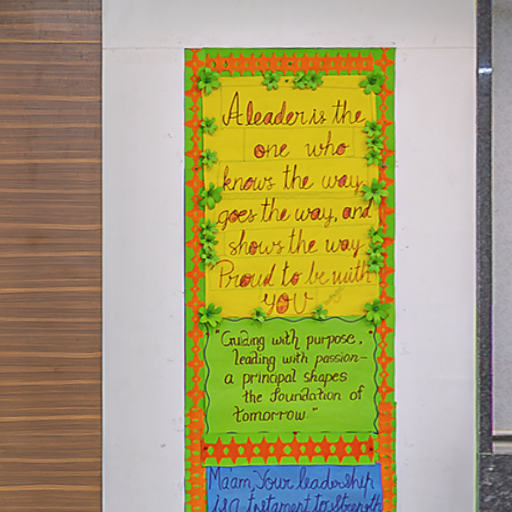 A leader is the
one who
knows the way
goes the way, and
shows the way
"Proud to be with
YOU
"Guiding with purpose,
leading with passion-
a principal shapes
the foundation of
tomorrow."
Ma'am, Your leadership
is a testament to strength